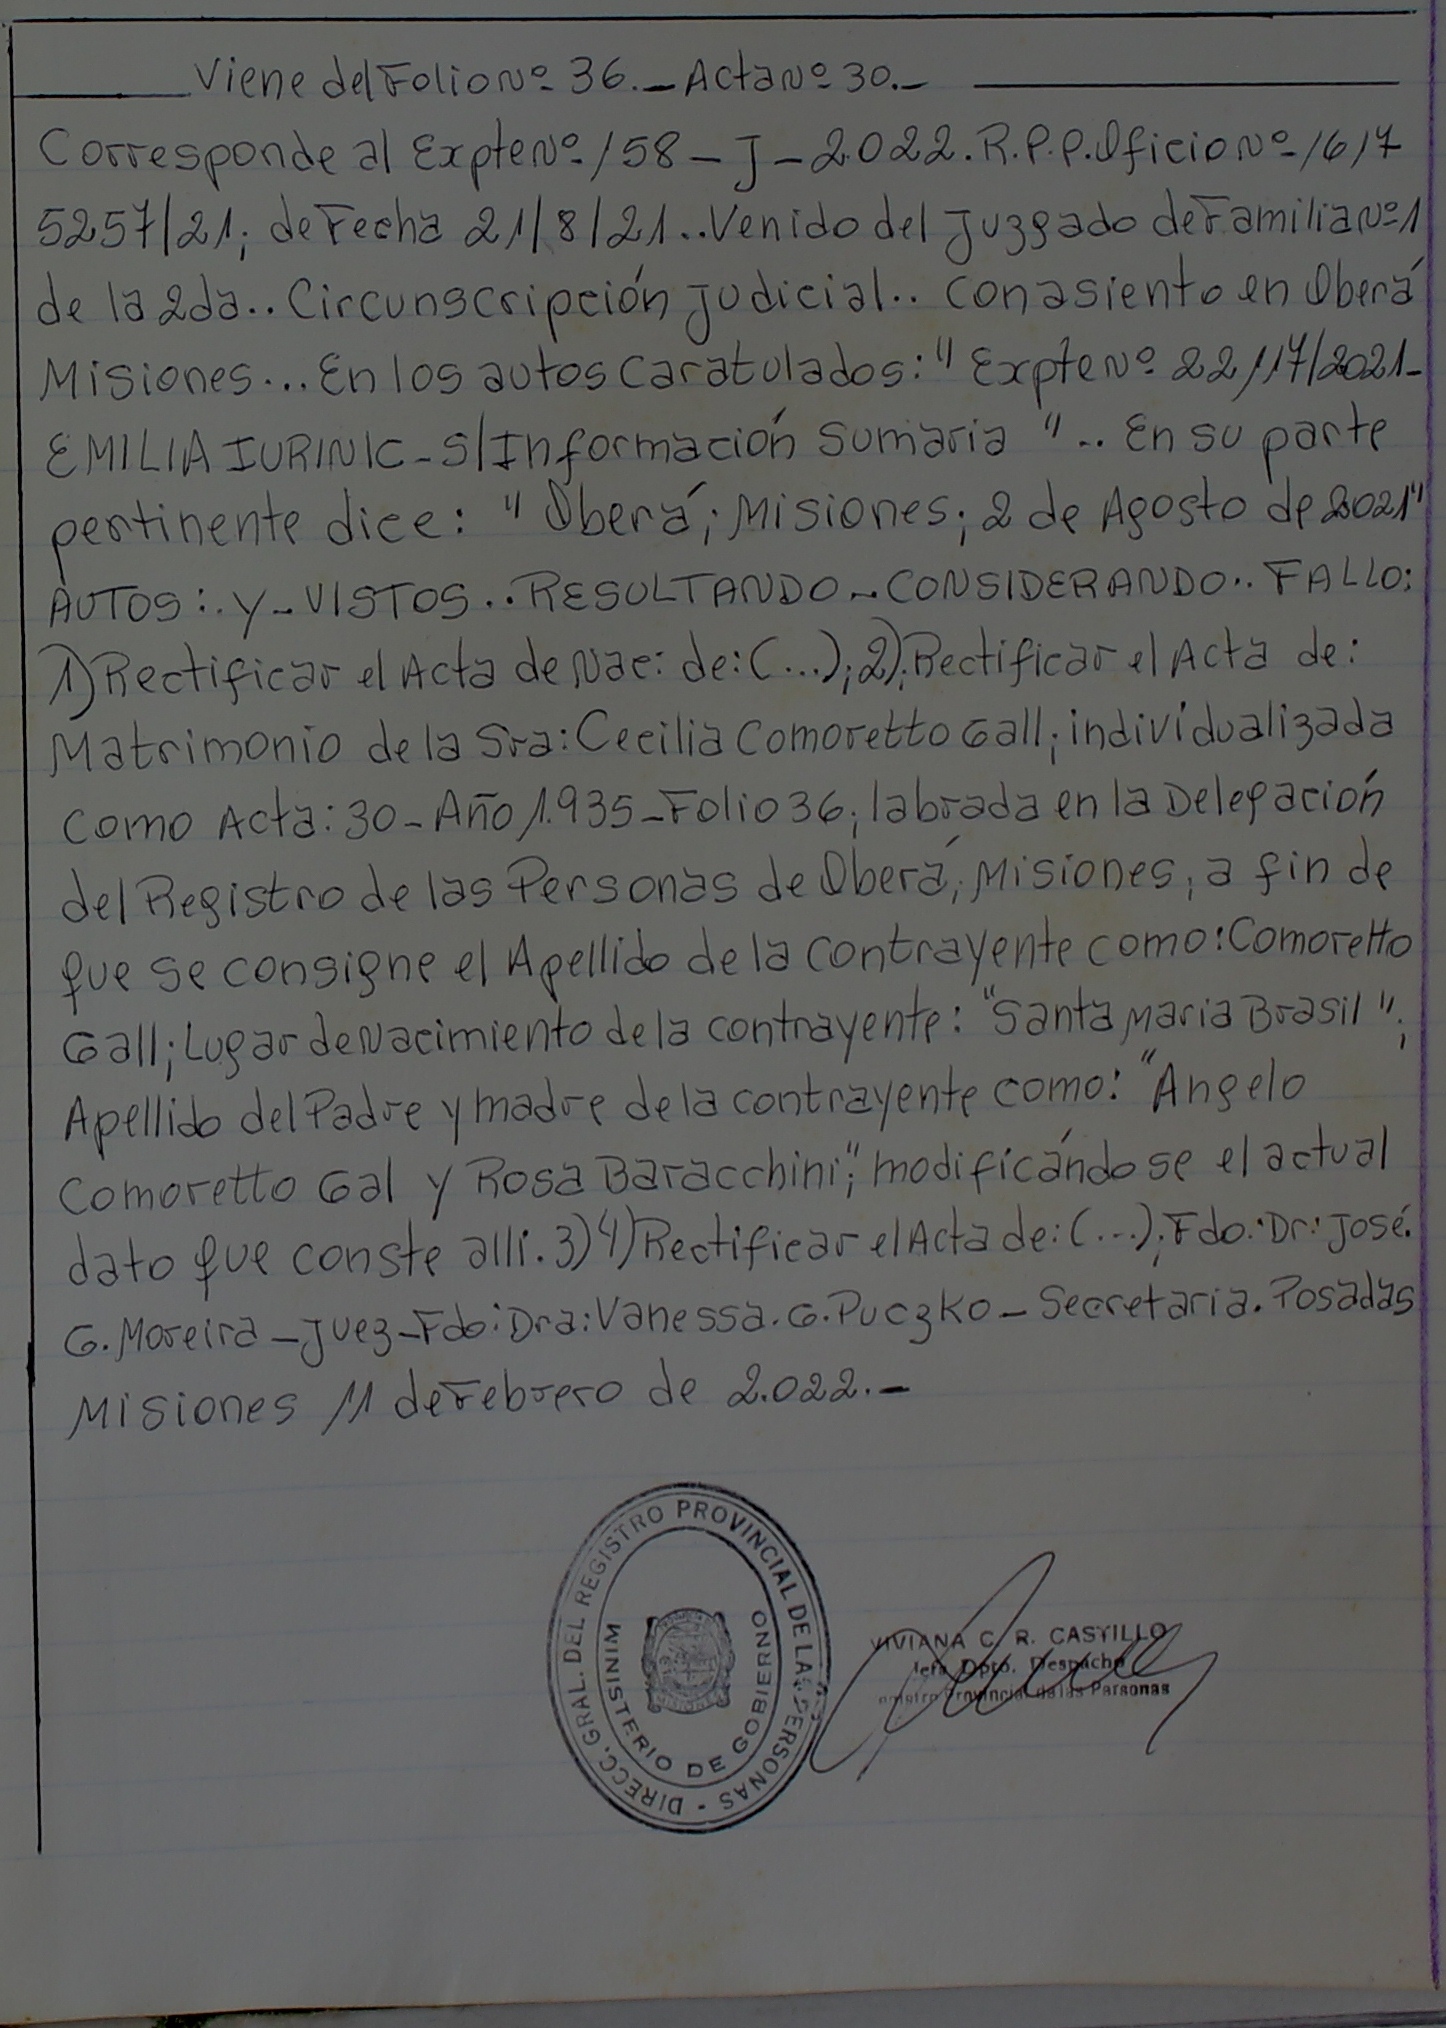 Viene del Folio Nº 36.- Acta Nº 30.-
Corresponde al Expte Nº 158-J-2.022. R.P.P. Oficio Nº 1617
5257/21; de Fecha 21/8/21.. Venido del Juzgado de Familia Nº 1
de la 2da.. Circunscripción Judicial.. Con asiento en Oberá
Misiones... En los autos Caratulados: "Expte Nº 22117/2021-
EMILIA IURINIC - S/Información Sumaria".. En su parte
pertinente dice: "Oberá; Misiones; 2 de Agosto de 2021"
AUTOS:. Y - VISTOS.. RESULTANDO - CONSIDERANDO.. FALLO:
1) Rectificar el Acta de Nac: de: (...); 2); Rectificar el Acta de:
Matrimonio de la Sra: Cecilia Comoretto Gall; individualizada
Como Acta: 30 - Año 1.935 - Folio 36; labrada en la Delegación
del Registro de las Personas de Oberá; Misiones; a fin de
que se consigne el Apellido de la contrayente como: Comoretto
Gall; Lugar de Nacimiento de la contrayente: "Santa Maria Brasil";
Apellido del Padre y madre de la contrayente como: "Angelo
Comoretto Gal y Rosa Baracchini"; modificándose el actual
dato que conste alli. 3) 4) Rectificar el Acta de: (...); Fdo: Dr: José.
G. Moreira - Juez - Fdo: Dra: Vanessa. G. Puczko - Secretaria. Posadas
Misiones 11 de Febrero de 2.022.-
DIRECC. GRAL. DEL REGISTRO PROVINCIAL DE LAS PERSONAS -
MINISTERIO DE GOBIERNO
MISIONES
VIVIANA C. R. CASTILLO
Jefa Dpto. Despacho
Provincial de las Personas